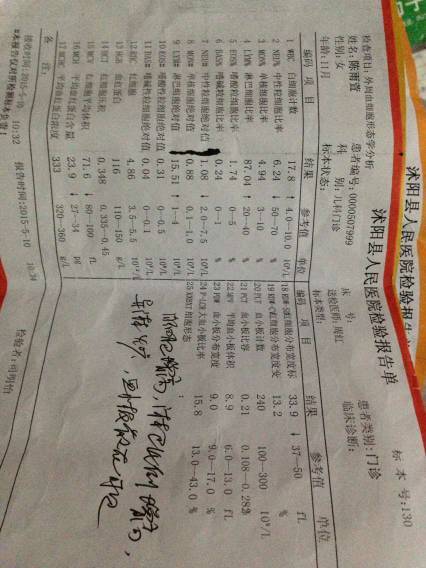 沭阳县人民医院检验报告单
沭阳县人民医院检验报告单
标本号:130
检查项目:外周血细胞形态学分析
姓名:陈雨萱 患者编号:0000507999 床号: 患者类别:门诊
性别:女 科别:儿科门诊 送检医师:周红 临床诊断:
年龄:11月 标本状态: 标本类型:
编码 项目 结果 参考值 单位 编码 项目 结果 参考值 单位
1 WBC 白细胞计数 17.8 ↑ 4.0--10.0 10⁹/L 18 红细胞分布宽度标 33.9 ↓ 37--50 fL
2 NEU% 中性粒细胞比率 6.24 ↓ 50--70 % 19 红细胞分布宽度变 13.2 %
3 MON% 单核细胞比率 4.94 3--10 % 20 PLT 血小板计数 240 100--300 10⁹/L
4 LYM% 淋巴细胞比率 87.04 ↑ 20--40 % 21 PCT 血小板比容 0.21 0.108--0.282 %
5 EOS% 嗜酸性粒细胞比率 1.74 0--5 % 22 MPV 平均血小板体积 8.9 6.0--13.0 fL
6 BAS% 嗜碱性粒细胞比率 0.24 0--1 % 23 PDW 血小板分布宽度 9.0 9.0--17.0 %
7 NEU# 中性粒细胞绝对值 1.08 ↓ 2.0--7.5 10⁹/L 24 P-LCR 大血小板比率 15.8 13.0--43.0 %
8 MON# 单核细胞绝对值 0.88 0.1--1.0 10⁹/L 25 XXBXT 细胞形态
9 LYM# 淋巴细胞绝对值 15.51 ↑ 1--4 10⁹/L
10 EOS# 嗜酸性粒细胞绝对值 0.31 0--0.5 10⁹/L
11 BAS# 嗜碱性粒细胞绝对值 0.04 0--0.1 10⁹/L
12 RBC 红细胞 4.86 3.5--5.5 10¹²/L
13 HGB 血红蛋白 116 110--150 g/L
14 HCT 红细胞压积 0.348 0.335--0.45
15 MCV 红细胞平均体积 71.6 ↓ 80--100 fL
16 MCH 平均血红蛋白含量 23.9 ↓ 27--34 pg
17 MCHC 平均血红蛋白浓度 333 320--360 g/L
备注:
接收时间:2015-5-10 10:32 报告时间:2015-5-10 检验者:
*本报告仅对检测标本负责!